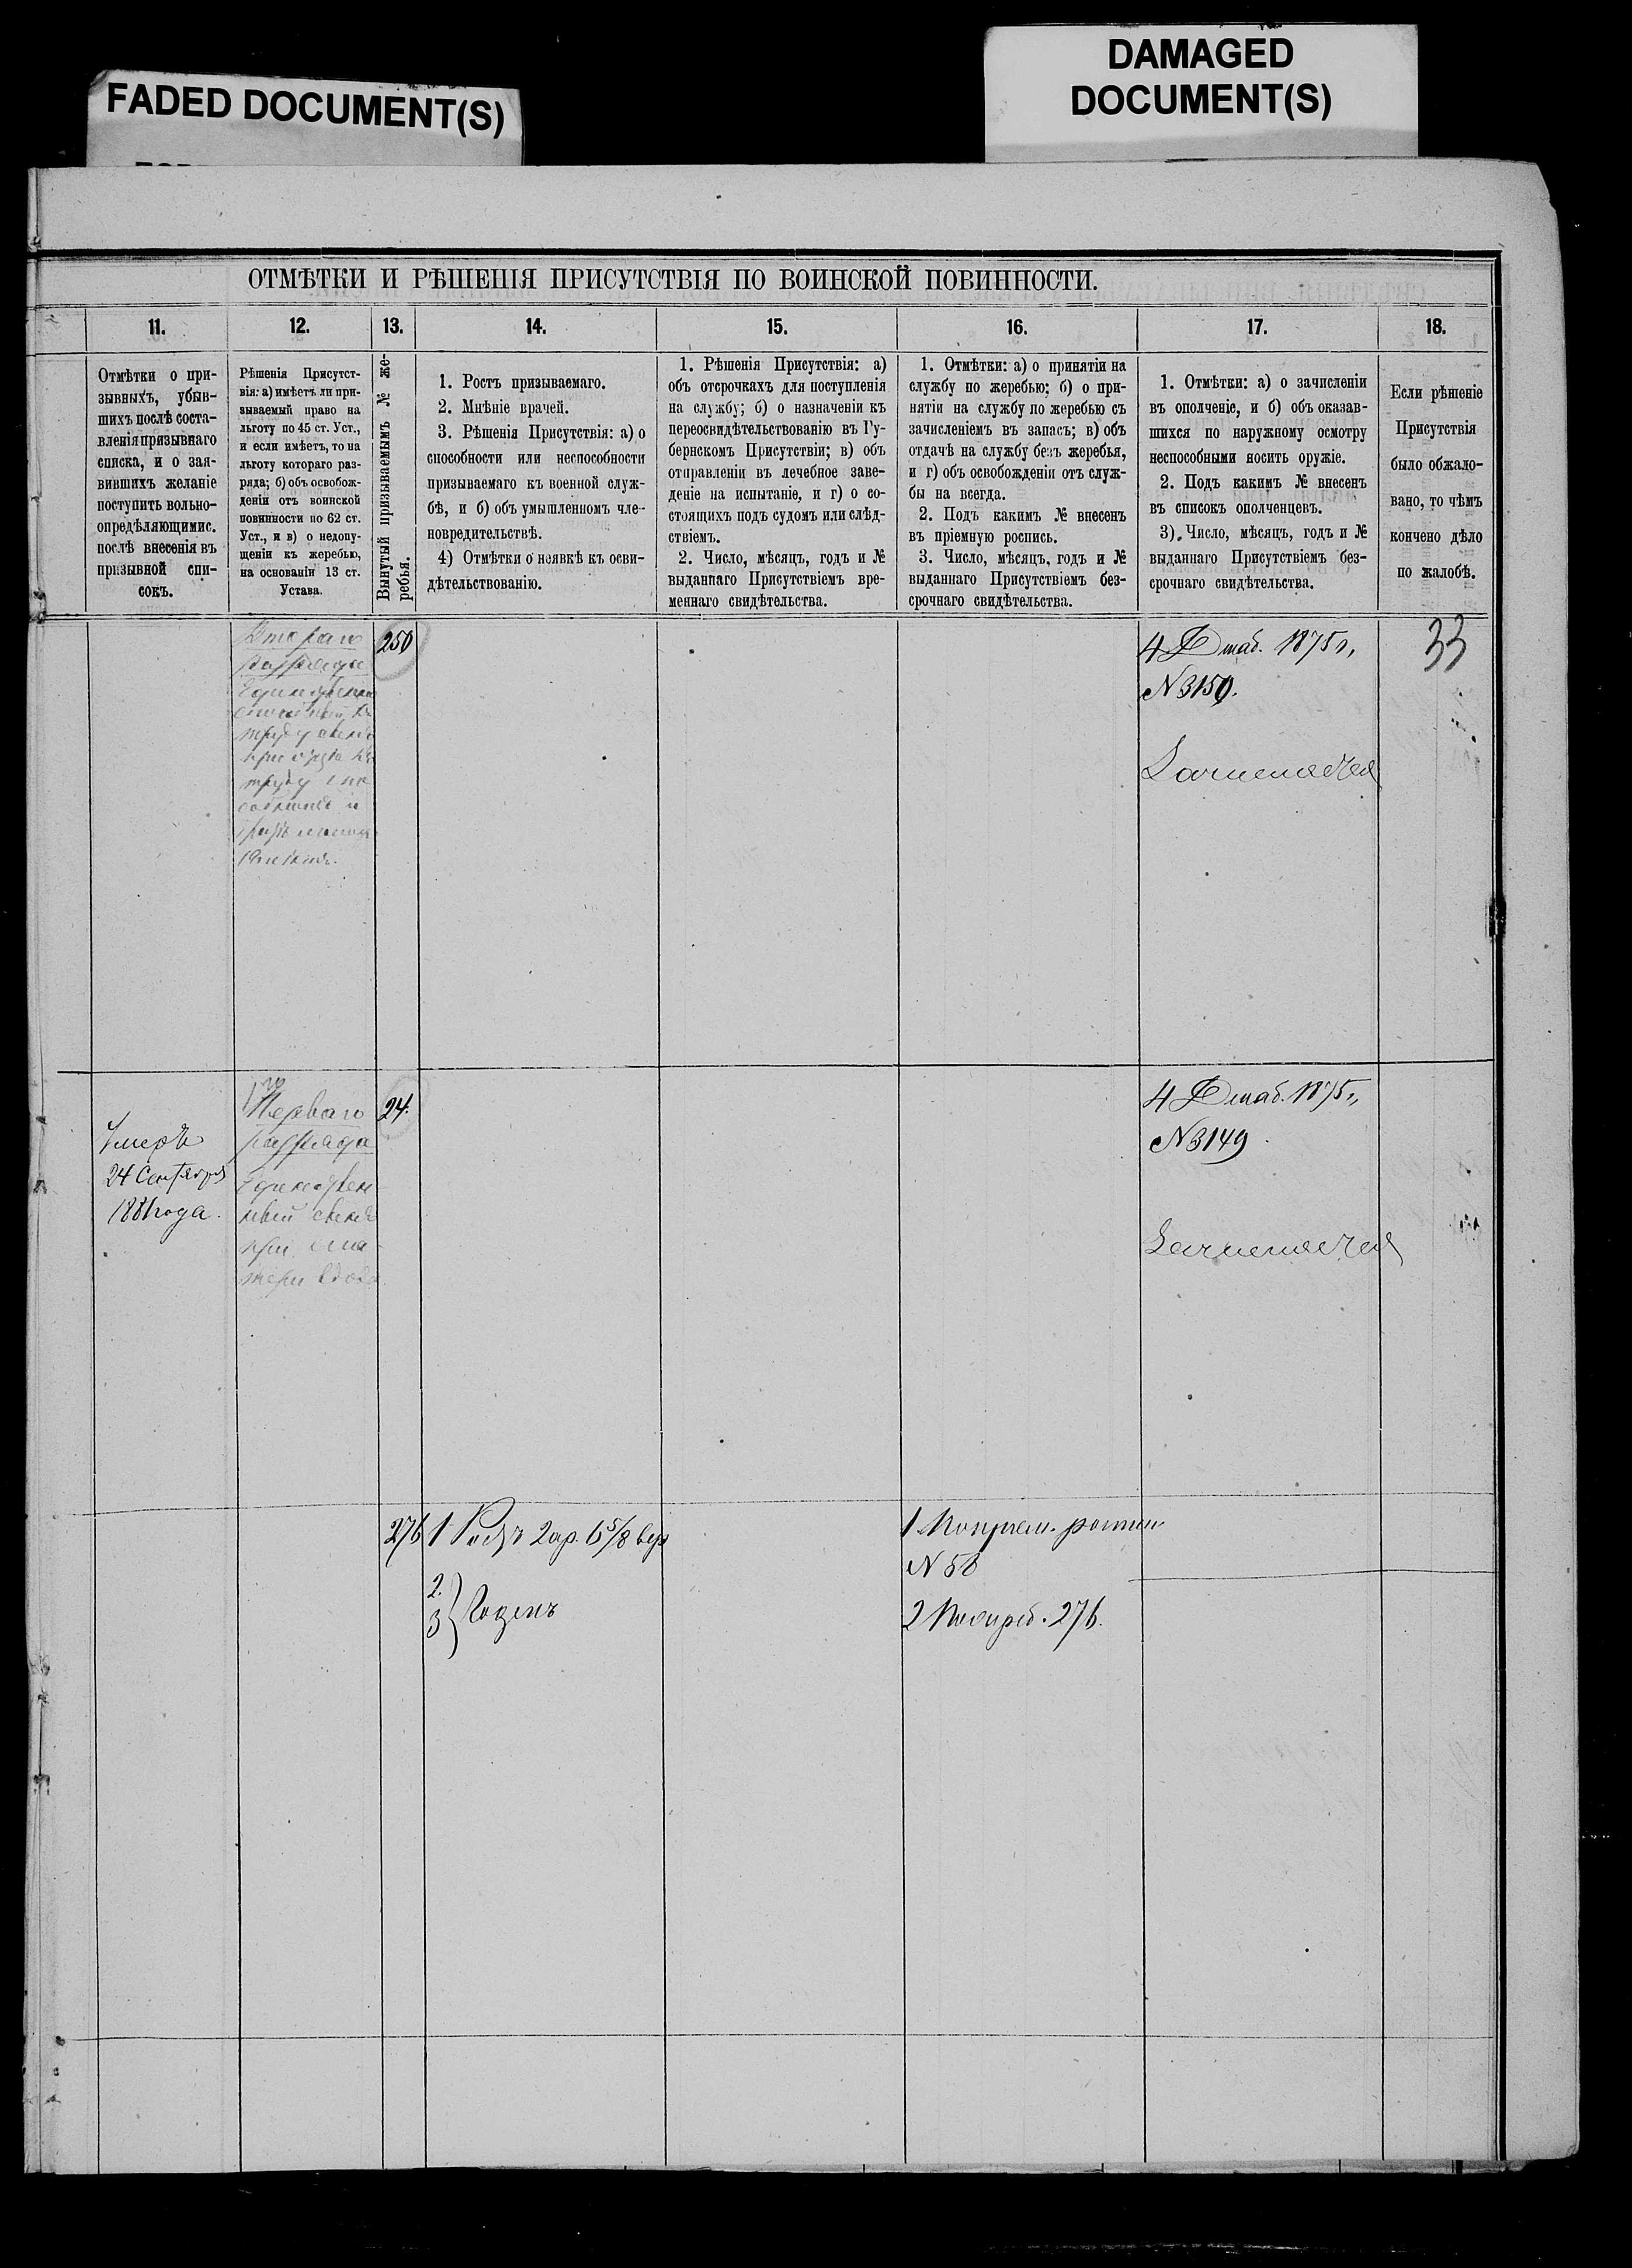 FADED DOCUMENT(S)
DAMAGED
DOCUMENT(S)
ОТМѢТКИ И РѢШЕНІЯ ПРИСУТСТВІЯ ПО ВОИНСКОЙ ПОВИННОСТИ.
11.
12.
13.
14.
15.
16.
17.
18.
Отмѣтки о при-
зывныхъ, убыв-
шихъ послѣ соста-
вленія призывнаго
списка, и о зая-
вившихъ желаніе
поступить вольно-
опредѣляющимис.
послѣ внесенія въ
призывной спи-
сокъ.
Рѣшенія Присутст-
вія: а) имѣетъ ли при-
зываемый право на
льготу по 45 ст. Уст.,
и если имѣетъ, то на
льготу котораго раз-
ряда; б) объ освобож-
деніи отъ воинской
повинности по 62 ст.
Уст., и в) о недопу-
щеніи къ жеребью,
на основаніи 13 ст.
Устава.
Вынутый призываемымъ № же-
ребья.
1. Ростъ призываемаго.
2. Мнѣніе врачей.
3. Рѣшенія Присутствія: а) о
способности или неспособности
призываемаго къ военной служ-
бѣ, и б) объ умышленномъ чле-
новредительствѣ.
4) Отмѣтки о неявкѣ къ осви-
дѣтельствованію.
1. Рѣшенія Присутствія: а)
объ отсрочкахъ для поступленія
на службу; б) о назначеніи къ
переосвидѣтельствованію въ Гу-
бернскомъ Присутствіи; в) объ
отправленіи въ лечебное заве-
деніе на испытаніе, и г) о со-
стоящихъ подъ судомъ или слѣд-
ствіемъ.
2. Число, мѣсяцъ, годъ и №
выданнаго Присутствіемъ вре-
меннаго свидѣтельства.
1. Отмѣтки: а) о принятіи на
службу по жеребью; б) о при-
нятіи на службу по жеребью съ
зачисленіемъ въ запасъ; в) объ
отдачѣ на службу безъ жеребья,
и г) объ освобожденіи отъ служ-
бы на всегда.
2. Подъ какимъ № внесенъ
въ пріемную роспись.
3. Число, мѣсяцъ, годъ и №
выданнаго Присутствіемъ без-
срочнаго свидѣтельства.
1. Отмѣтки: а) о зачисленіи
въ ополченіе, и б) объ оказав-
шихся по наружному осмотру
неспособными носить оружіе.
2. Подъ какимъ № внесенъ
въ списокъ ополченцевъ.
3). Число, мѣсяцъ, годъ и №
выданнаго Присутствіемъ без-
срочнаго свидѣтельства.
Если рѣшеніе
Присутствія
было обжало-
вано, то чѣмъ
кончено дѣло
по жалобѣ.
Втораго
разряда
250
4 1875 г.
№ 3150.
33
Умеръ
24 Сентября
1881 года.
Перваго
разряда
Единствен-
ный сынъ
при ма-
тери вдовѣ.
24.
4 1875 г.
№ 3149
276
1 Ростъ 2 ар. 6 5/8 вер
2.
3 } Годенъ
1
№ 58
2 276.